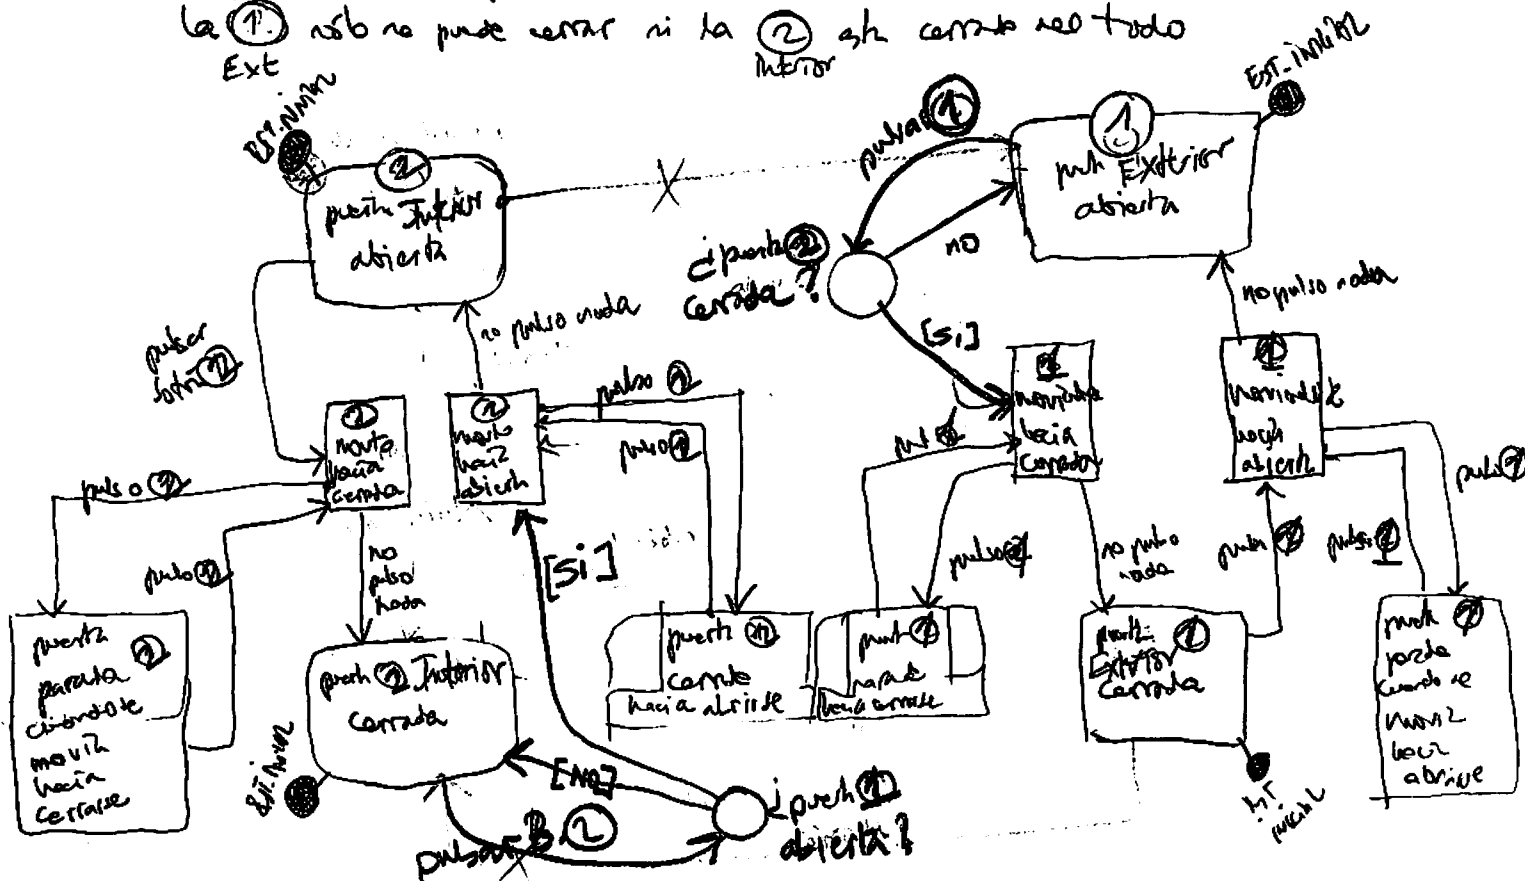 la 1 sólo se puede cerrar si la 2 está cerrada del todo
Ext
Interior
EST. INICIAL
2
puerta Interior
abierta
pulsar
botón 2
no pulso nada
pulso 2
pulso 2
2
hacia
cerrada
2
hacia
abierta
pulso 2
pulso 2
no
pulso
nada
[Si]
puerta
parada 2
cuando se
movía
hacia
cerrarse
puerta 2 Interior
cerrada
EST. INICIAL
puerta 2
hacia abrirse
[NO]
pulsar B. 2
¿puerta 1
abierta?
EST_INICIAL
pulsar 1
1
puerta Exterior
abierta
no
¿puerta 2
cerrada?
[Si]
no pulso nada
1
hacia
cerrada
1
hacia
abierta
pulso 1
pulso 1
no pulso
nada
pulso 1
pulso 1
puerta 1
parada
hacia cerrarse
puerta 1
Exterior
cerrada
EST
inicial
puerta 1
parada
cuando se
movía
hacia
abrirse